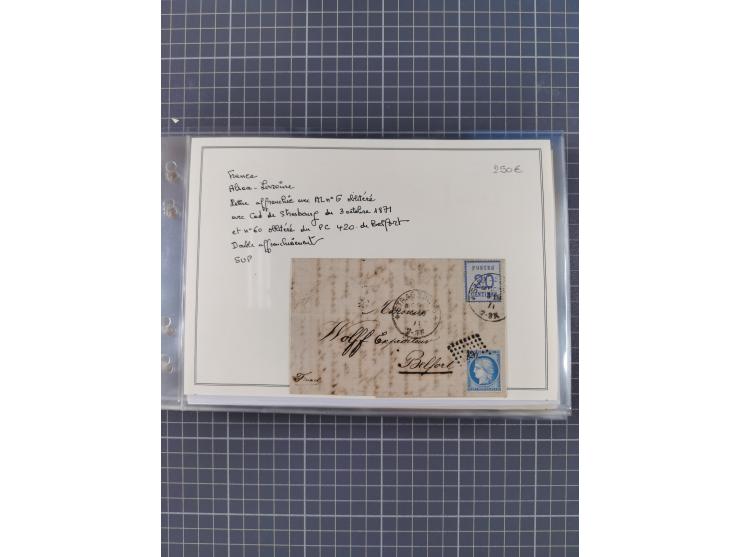 France
250€
Alsace-Lorraine
lettre affranchie avec AL n° 6 oblitéré
avec Cad de Strasbourg du 3 octobre 1871
et n° 60 oblitéré du PC 420 de Belfort
Double affranchissement
SUP
POSTES
20
CENTIMES
STRASSBURG
71
Monsieur
Wolff Expediteur
Belfort